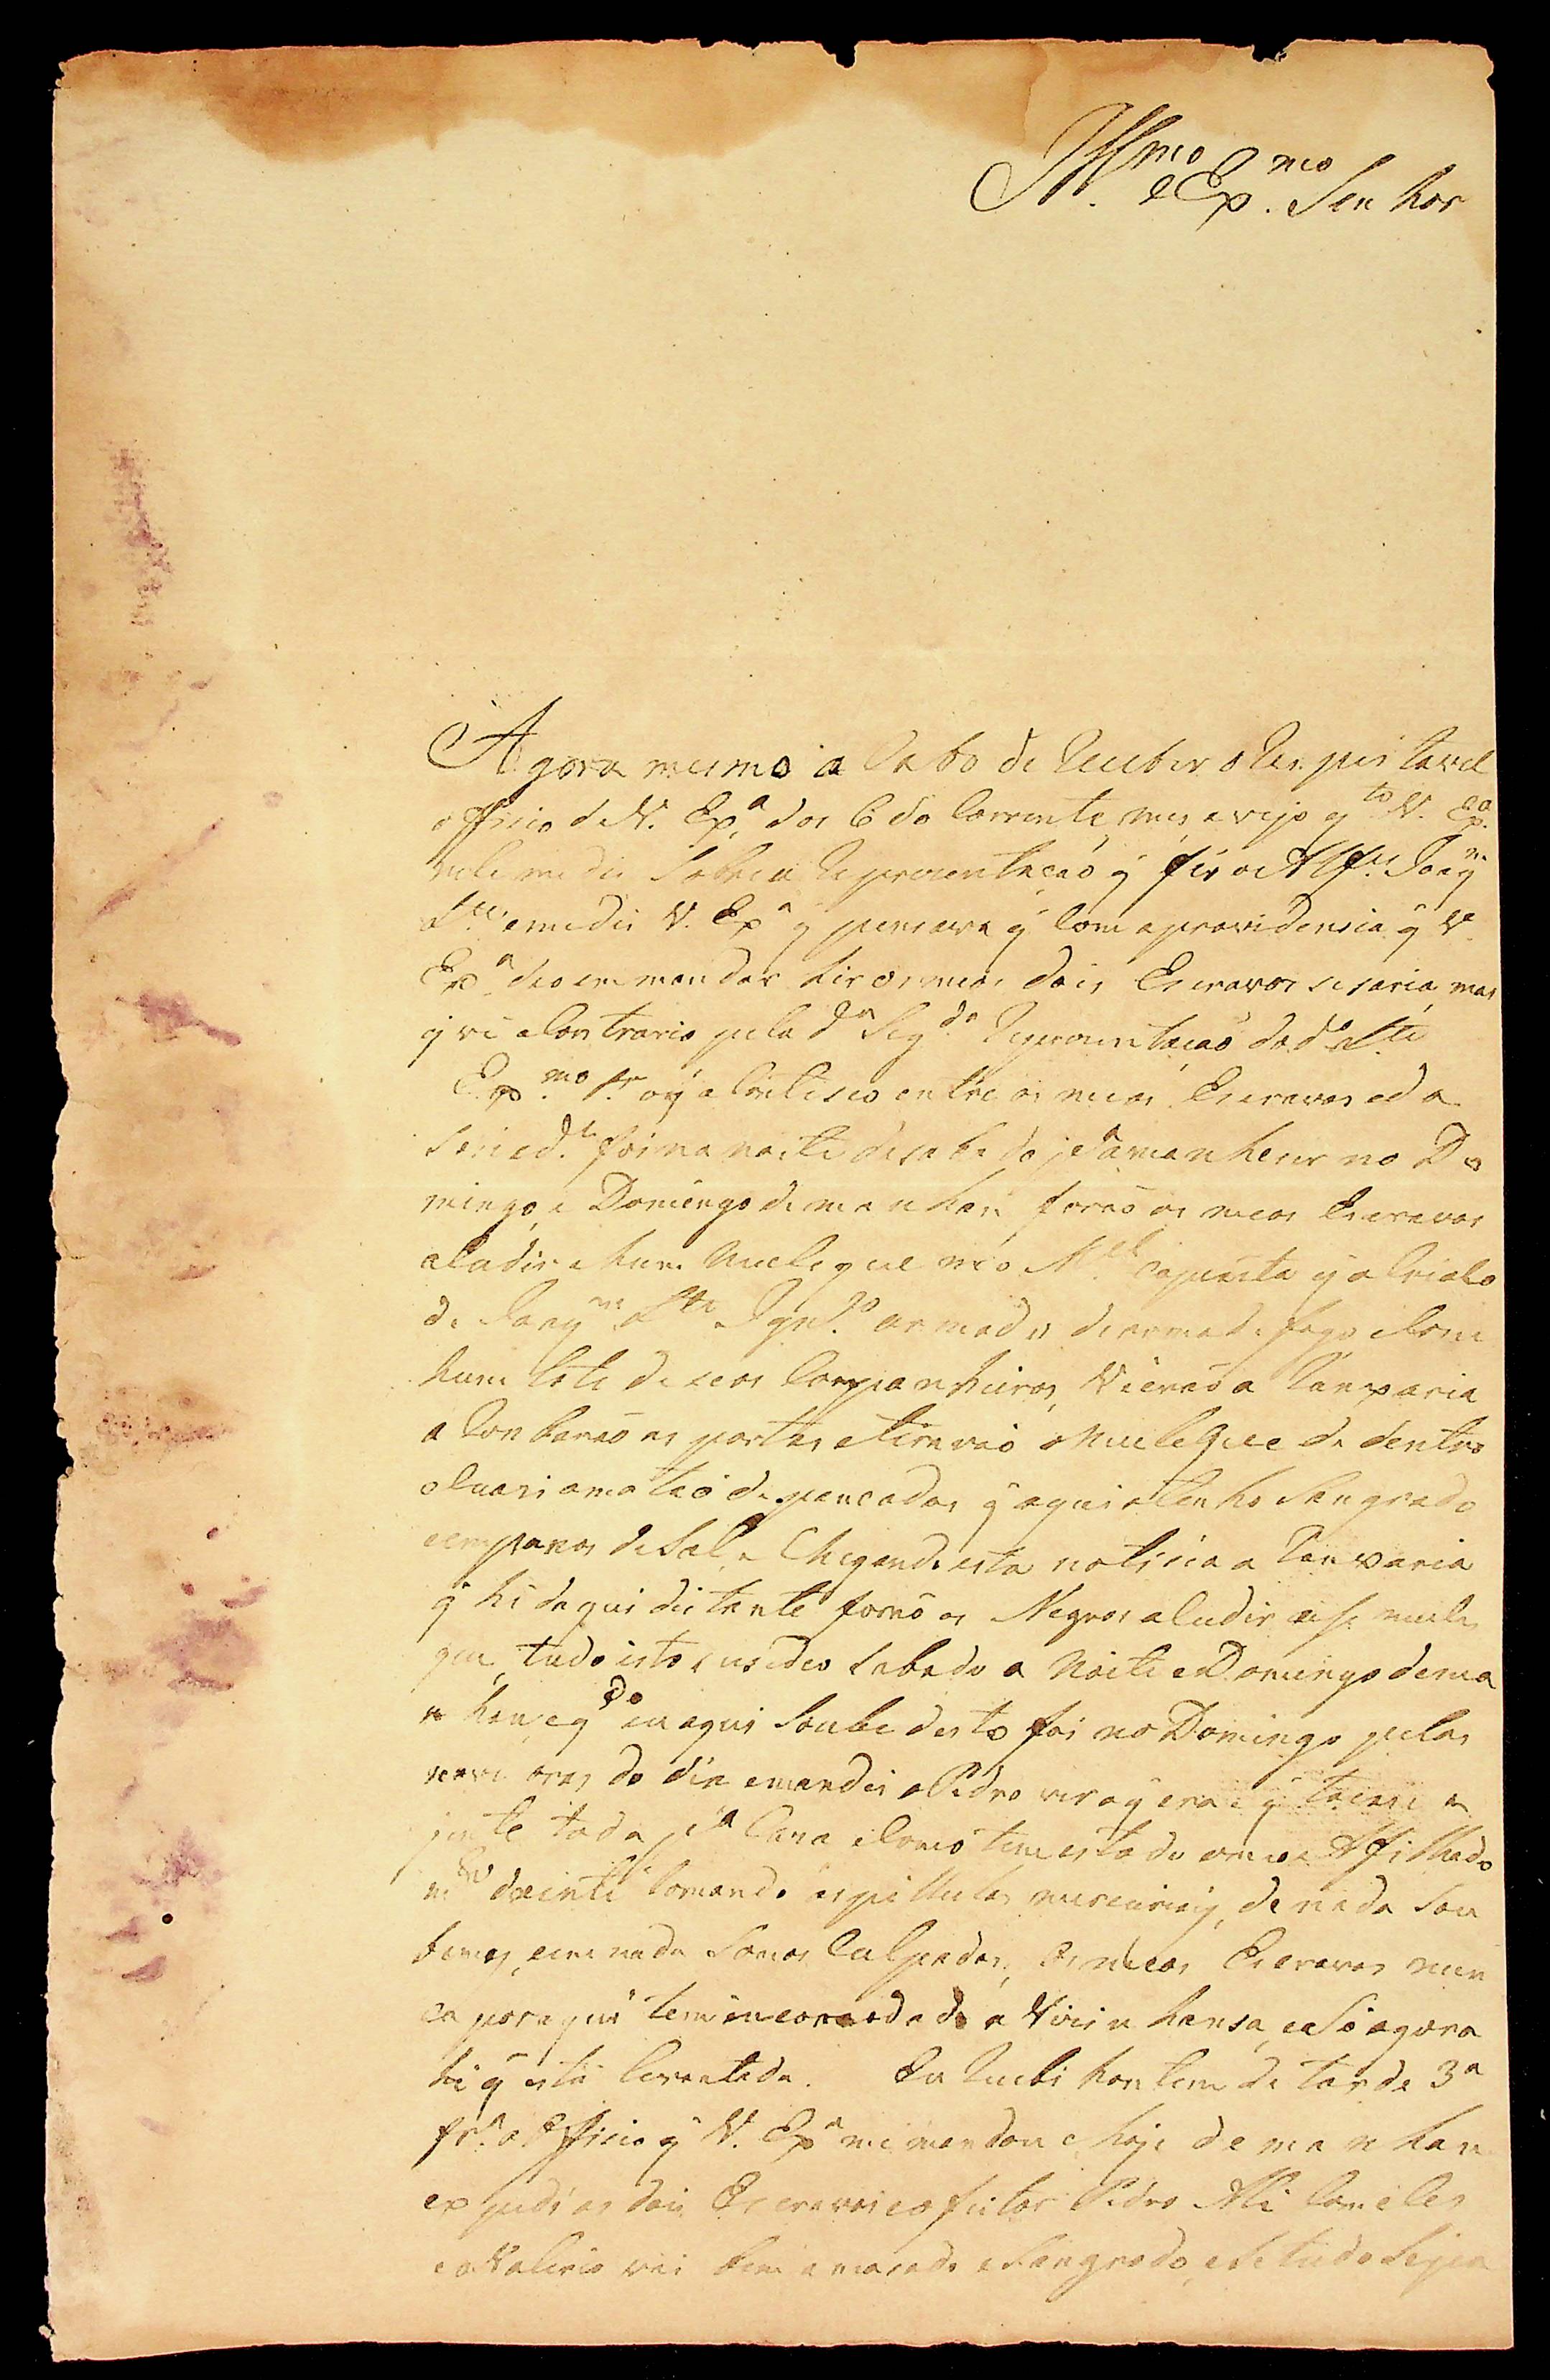 Ill.mo e Exp.mo Senhor
Agora mesmo a Cabo de Receber o Respeitavel
officio de V. Exp.a dos 6 do Corrente mes, e vejo q.to V. Exp.a
nele me diz Sobre a Representacaõ q̃ fes o Alf.es Joaq.m
e me diz V. Exp.a q̃ pensava q̃ Com a providensia q̃ V.
Exp.a deo em mandar hir os meos dois Escravos mas
q̃ vê o Contrario pela d.a Seg.da Representacaõ do d.o
Exp.mo S.r o q̃ a Contiseo entre os meos Escravos e da
foi na noite de sabado p.a amanheser no Do
mingo, e Domingo de manhan foraõ os meos Escravos
aCudir a hum Muleque meo M.el Capueita q̃ o Crialo
de Joaq.m armado de arma de fogo e Com
hum lote de seos Companheiros, Vieraõ a Tanxaria
a Ronbaraõ as portas e tiraraõ o Muleque de dentro
e Cuasi o mataõ de pancadas q̃ aqui o tenho Sangrado
e em panos de Sal, e Chegando esta notisia a Tanxaria
q̃ hé daqui distante foraõ os Negros aCudir esse mule
que, tudo isto susedeo Sabado a Noite e Domingo de ma
nhan, e q.do eu aqui Soube desto foi no Domingo pelas
nove oras do dia e mandei o Pedro ver o q̃ era
jente toda p.a Caza e Como tem estado o meo Afilhado
m.to doente tomando as pillulas mercuriais, de nada Sou
bemos, e em nada Somos Culpados, Os meos Escravos nun
ca por aqui tem encomodado a Vizinhansa, e Só agora
hé q̃ está levantada. Eu Recebi hontem de tarde 3.a
fr.a o Officio q̃ V. Exp.a me mandou e hoje de manhan
expedi os dois Escravos e o feitor Pedro Ali Com eles
e o Valerio vai bem amasado e Sangrado, e Se tudo Seja